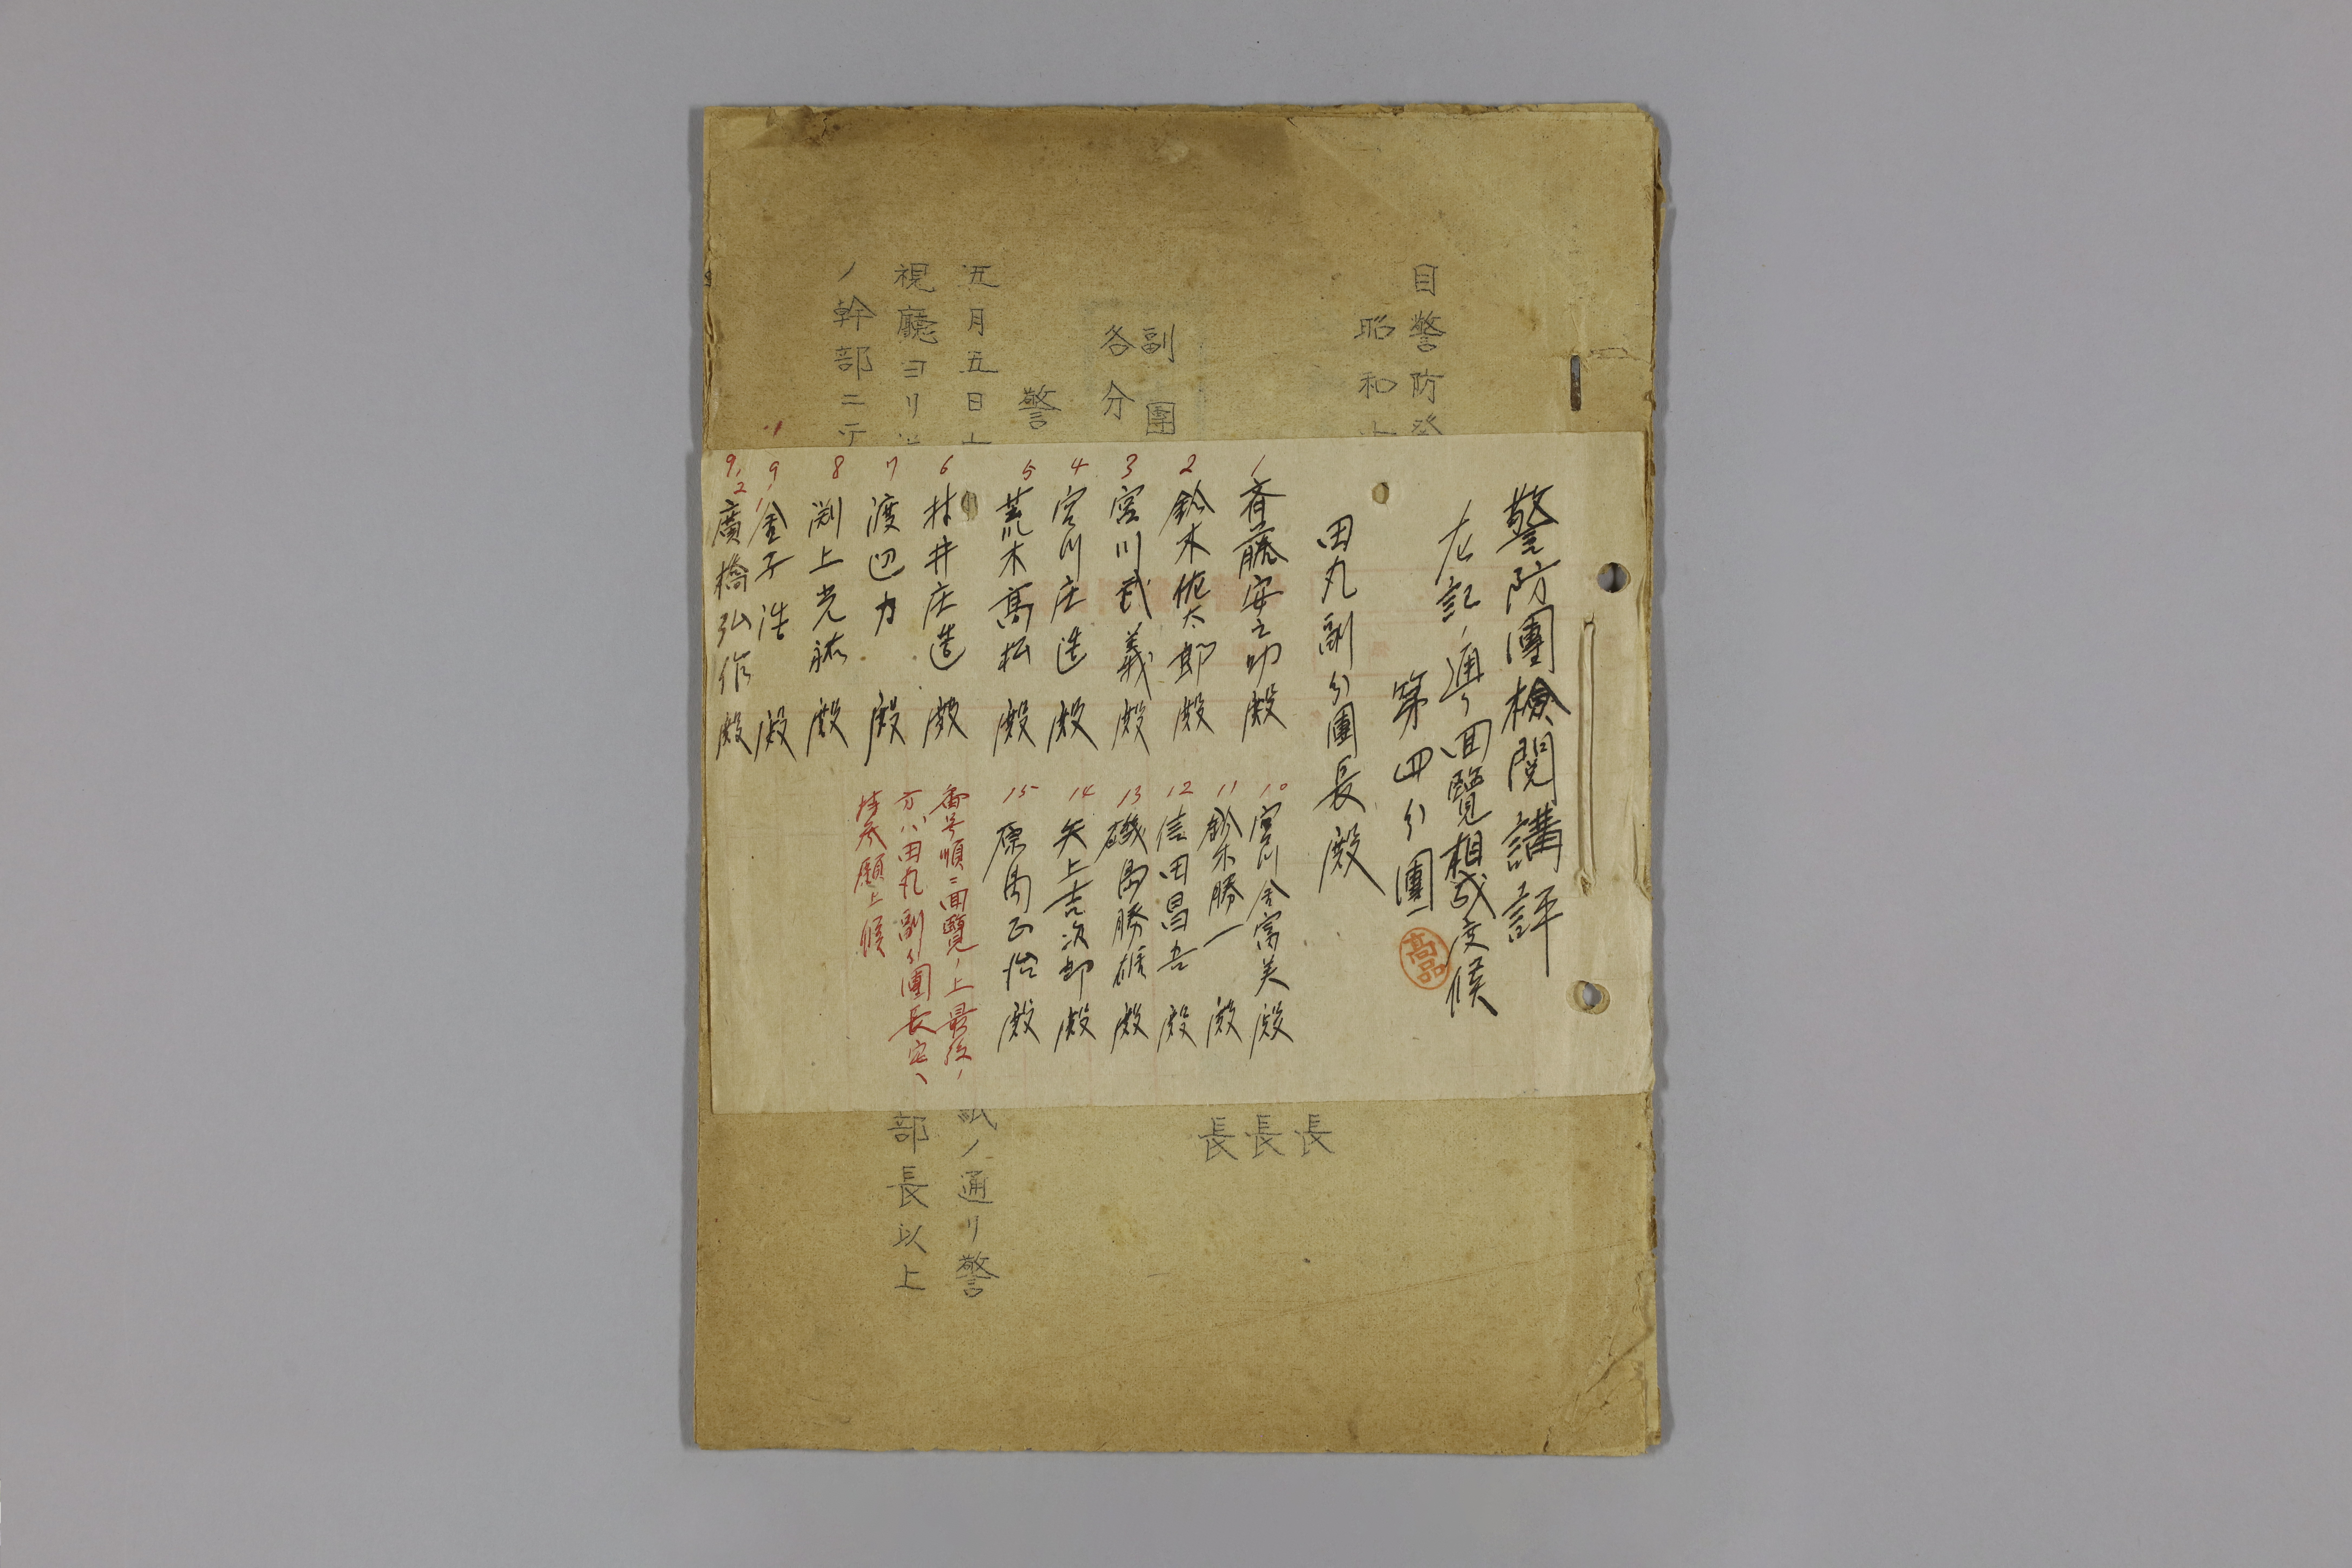 警防團檢閲講評
左記ノ通リ回覽相成度候
第四分團
田丸副分團長殿
1 斉藤安之助殿
2 鈴木佐太郎殿
3 宮川武義殿
4 宮川庄造殿
5 荒木髙松殿
6 村井庄造殿
7 渡辺力殿
8 渕上光祐殿
9,1 金子浩殿
9,2 廣橋弘作殿
10 宮川金富美殿
11 鈴木勝一殿
12 信田昌吾殿
13 磯島勝雄殿
14 矢上吉次郎殿
15 原島正治殿
番号順ニ回覽ノ上最後ノ
方ハ田丸副分團長宅ヘ
持参願上候
目警防発
昭和十
副團
各分
長
長
長
警
五月五日
紙ノ通リ警
視廳ヨリ
部長以上
ノ幹部ニ